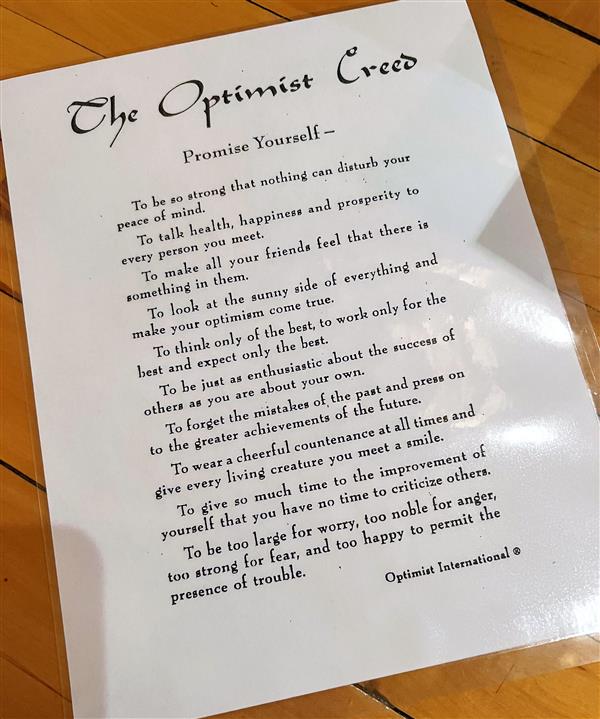 The Optimist Creed
Promise Yourself—
To be so strong that nothing can disturb your
peace of mind.
To talk health, happiness and prosperity to
every person you meet.
To make all your friends feel that there is
something in them.
To look at the sunny side of everything and
make your optimism come true.
To think only of the best, to work only for the
best and expect only the best.
To be just as enthusiastic about the success of
others as you are about your own.
To forget the mistakes of the past and press on
to the greater achievements of the future.
To wear a cheerful countenance at all times and
give every living creature you meet a smile.
To give so much time to the improvement of
yourself that you have no time to criticize others.
To be too large for worry, too noble for anger,
too strong for fear, and too happy to permit the
presence of trouble.
Optimist International ®